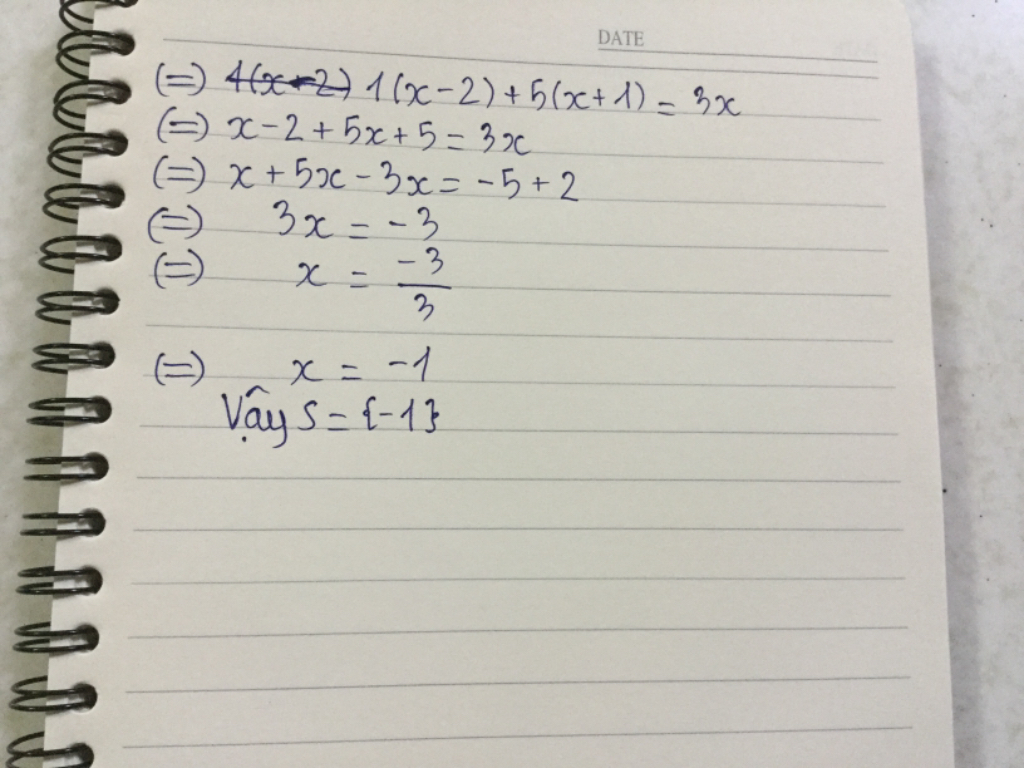 DATE
(=) 1(x-2) 1(x-2)+5(x+1) = 3x
(=) x-2+5x+5=3x
(=) x+5x-3x=-5+2
(=) 3x = -3
(=) x = -3/3
(=) x = -1
Vậy S={-1}